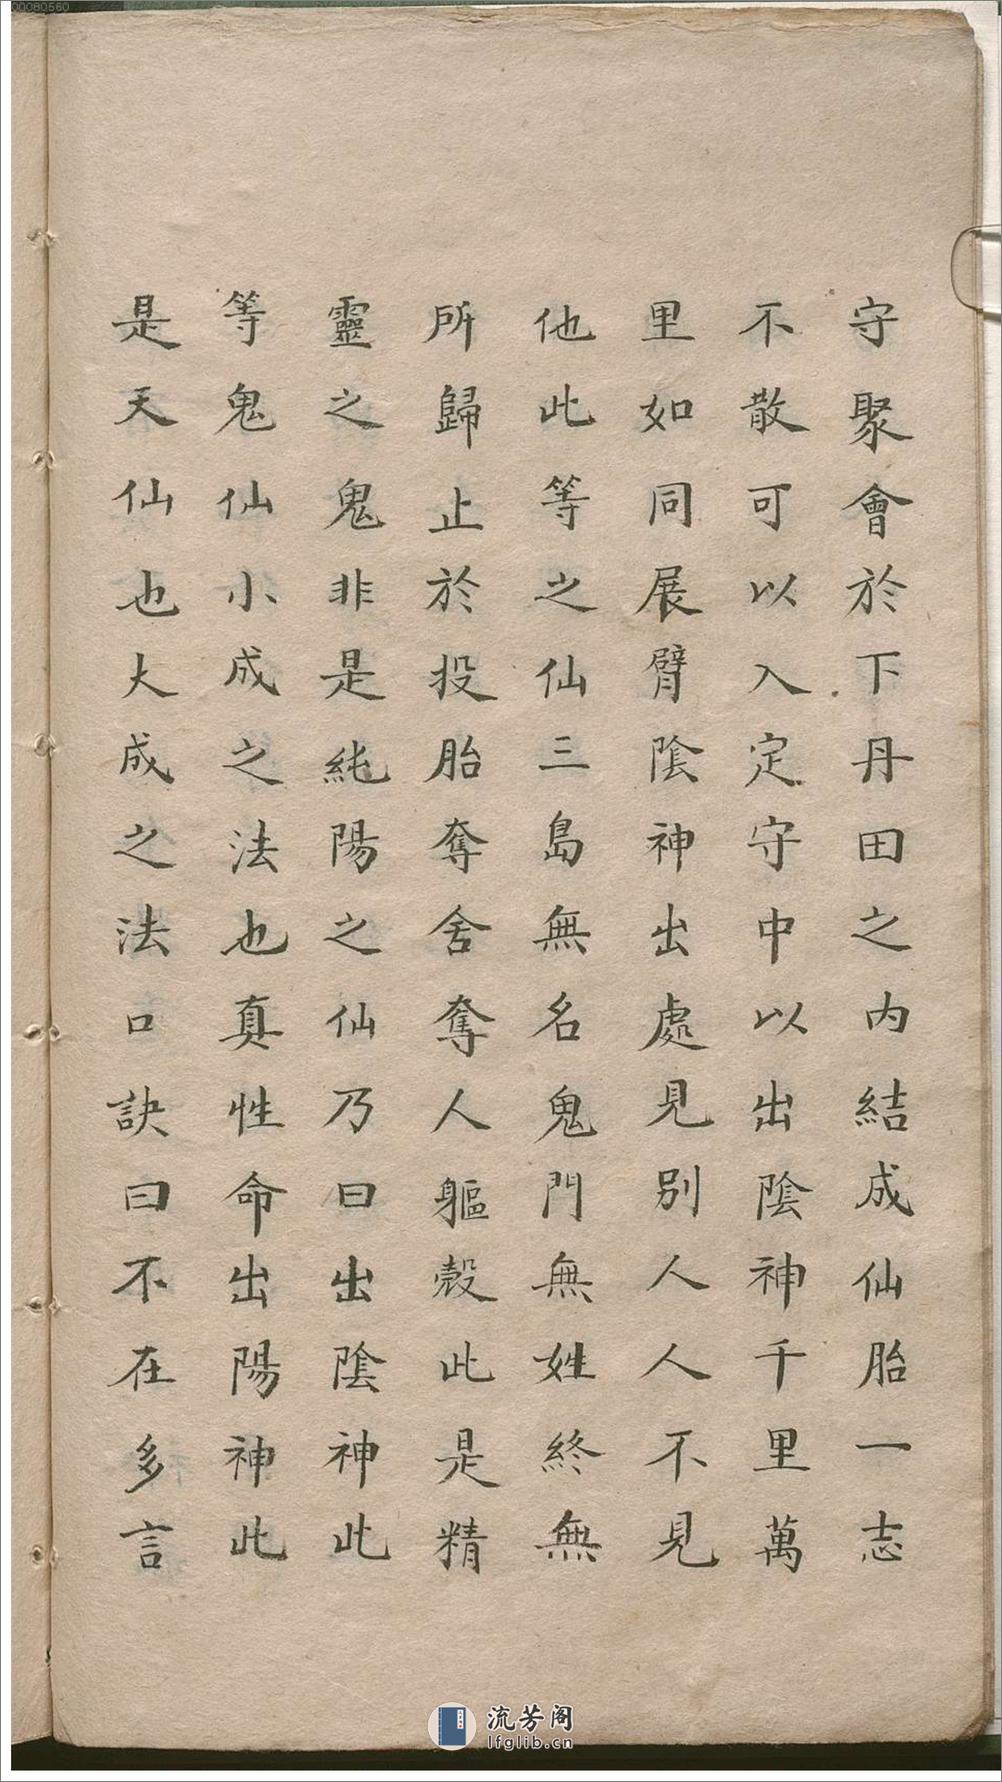 守聚會於下丹田之内結成仙胎一志
不散可以入定守中以出陰神千里萬
里如同展臂陰神出處見別人人不見
他此等之仙三島無名鬼門無姓終無
所歸止於投胎奪舍奪人軀殼此是精
靈之鬼非是純陽之仙乃曰出陰神此
等鬼仙小成之法也真性命出陽神此
是天仙也大成之法口訣曰不在多言
00080560
流芳阁
lfglib.cn